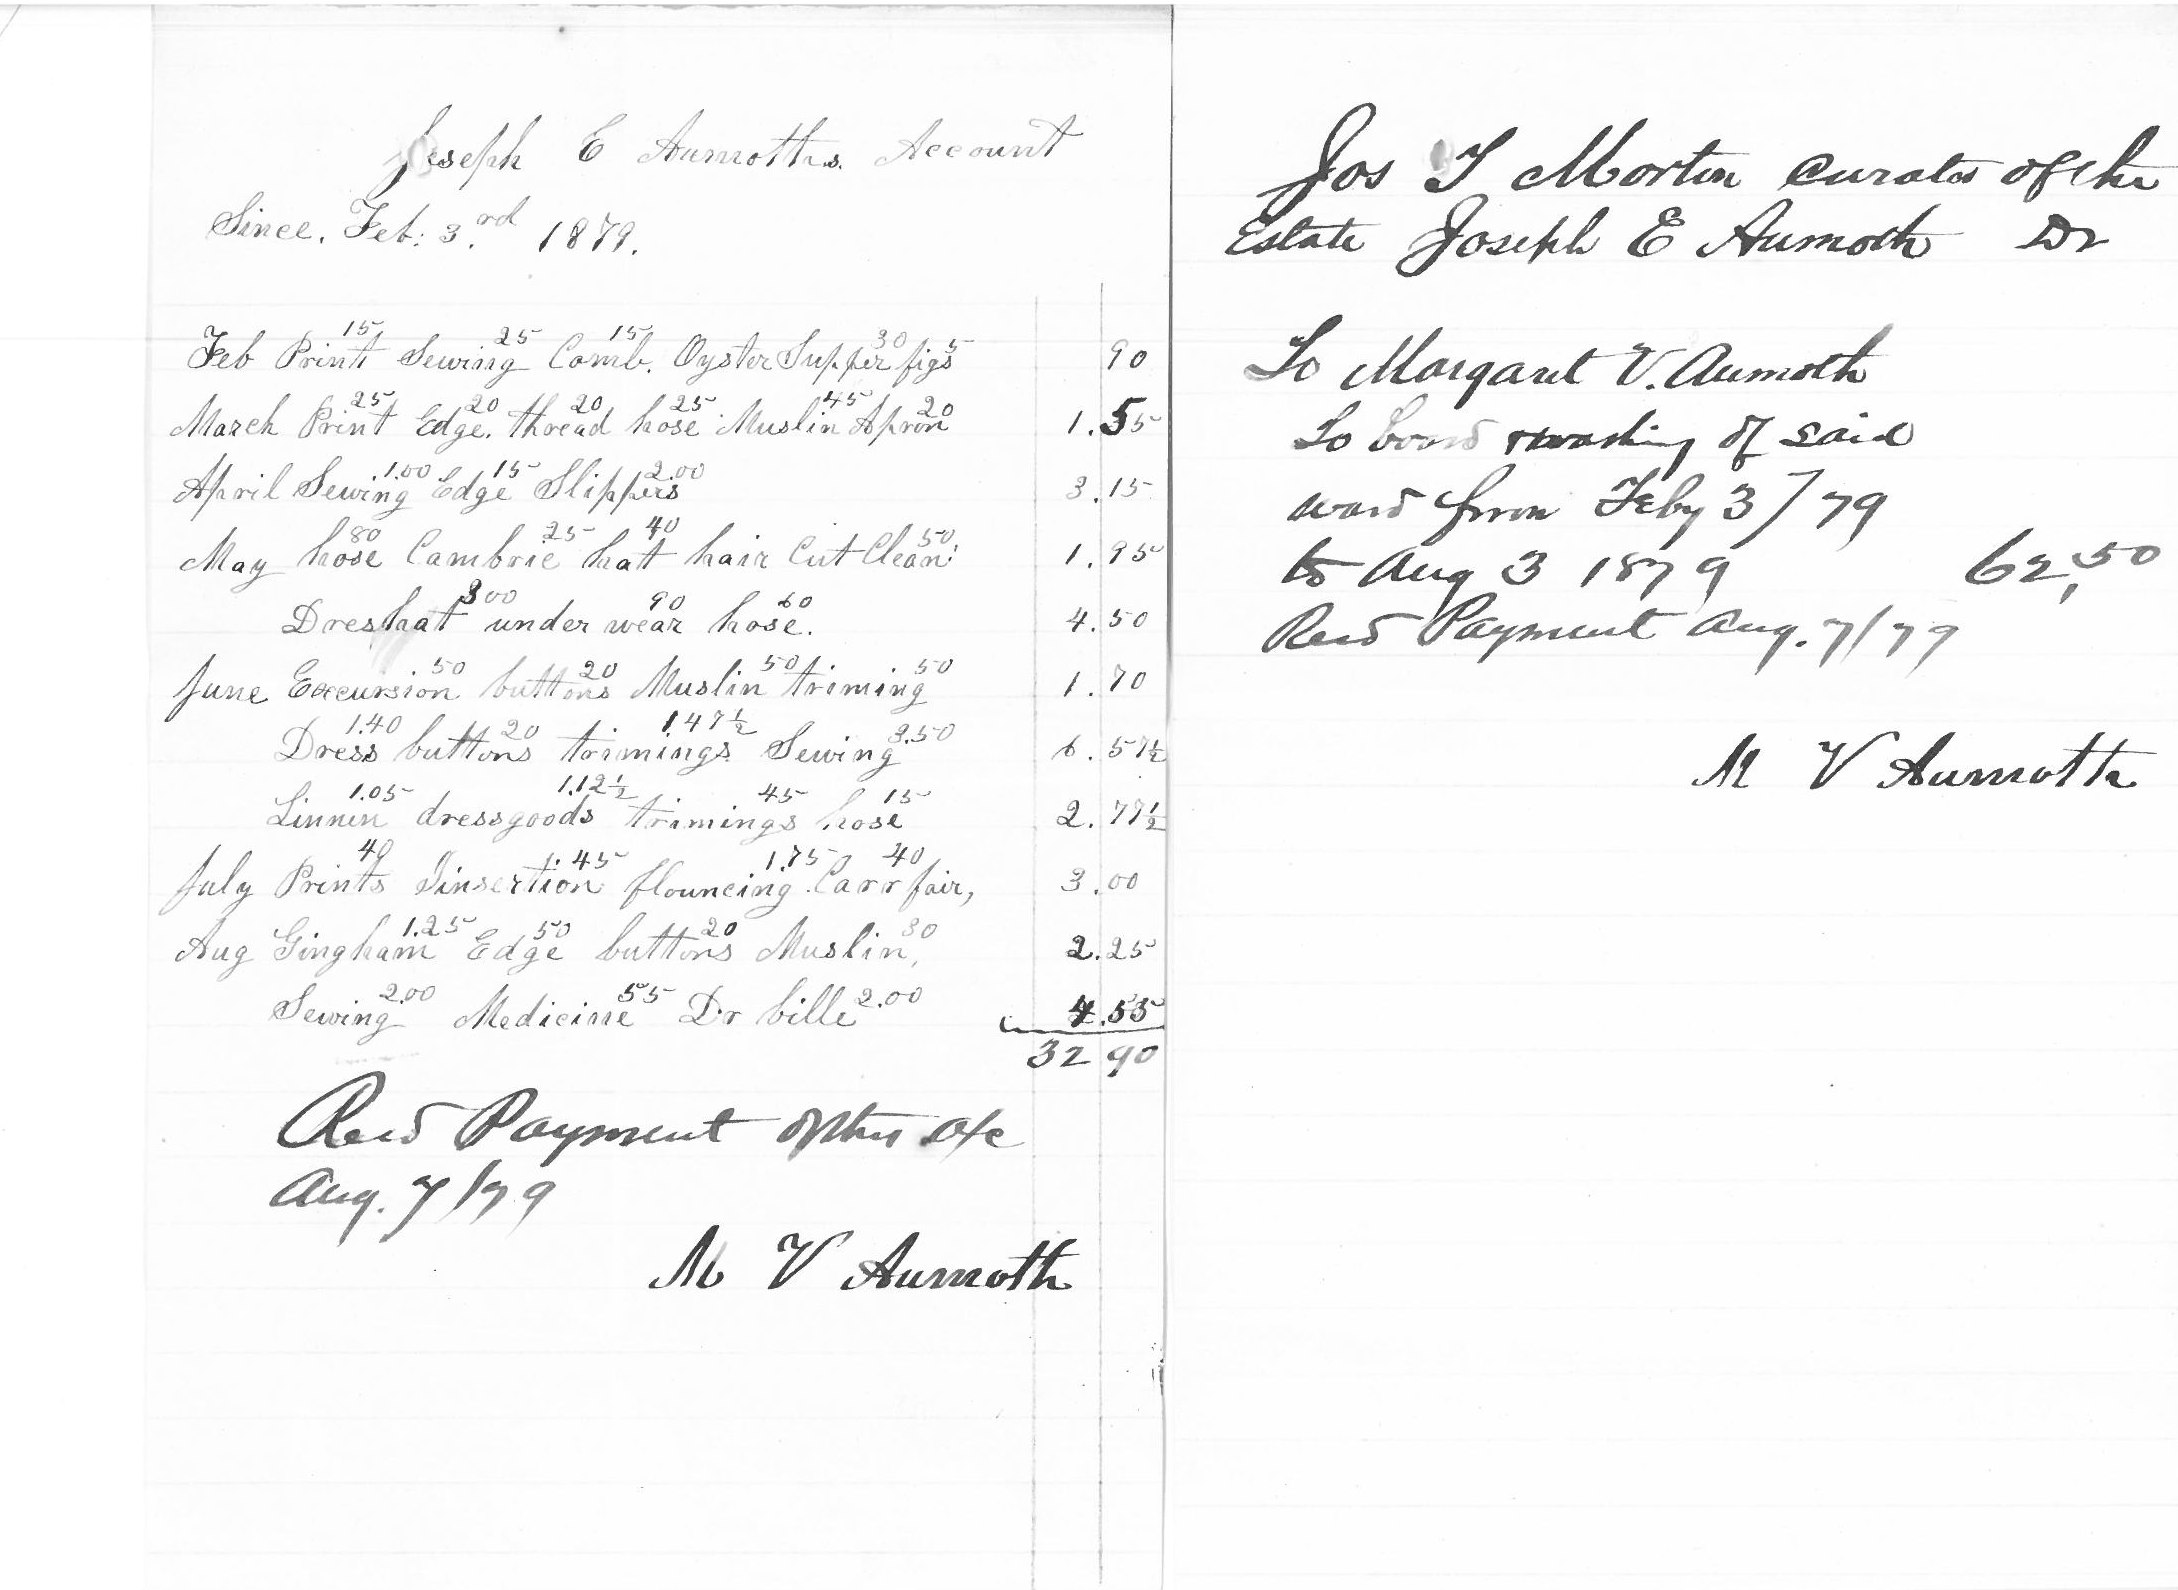 Joseph E Aumoths. Account
Since. Feb: 3.rd 1879.
15 25 15 30 5
Feb Print Sewing Comb. Oyster Supper figs 90
25 20 20 25 45 20
March Print Edge. thread hose Muslin Apron 1.55
1.00 15 2.00
April Sewing Edge Slippers 3.15
80 25 40 50
May hose Cambric hat hair Cut Clean: 1.95
300 90 60
Dreshat under wear hose. 4.50
50 20 50 50
June Excursion buttons Muslin triming 1.70
1.40 20 1.47½ 3.50
Dress buttons trimings Sewing 6.57½
1.05 1.12½ 45 15
Linnen dressgoods trimings hose 2.77½
40 1.45 1.75 40
July Prints Iinsertion flouncing Carr fair, 3.00
1.25 50 20 30
Aug Gingham Edge buttons Muslin, 2.25
2.00 55 2.00
Sewing Medicine Dr bille 4.55
32 90
Recd Payment of this a/c
Aug. 7/79
M V Aumoth
Jos T Morton Curator of the
Estate Joseph E Aumoth Dr
To Margaret V. Aumoth
To board & washing of said
ward from Feby 3/79
to Aug 3 1879 62,50
Recd Payment Aug. 7/79
M V Aumoth